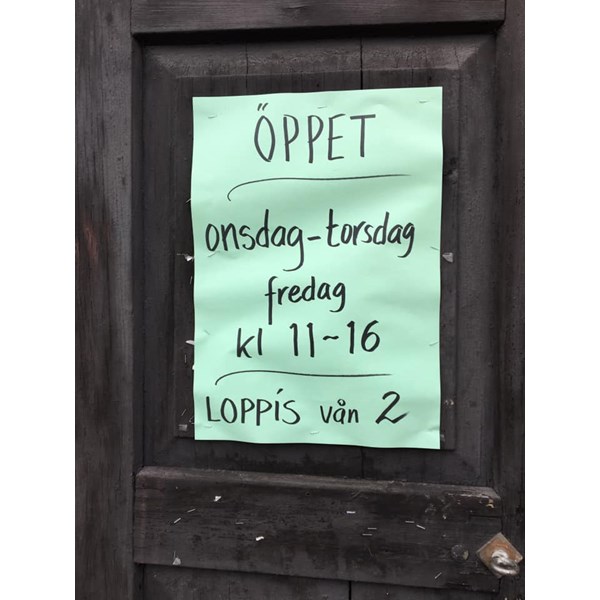 ÖPPET
onsdag-torsdag
fredag
kl 11-16
LOPPIS vån 2